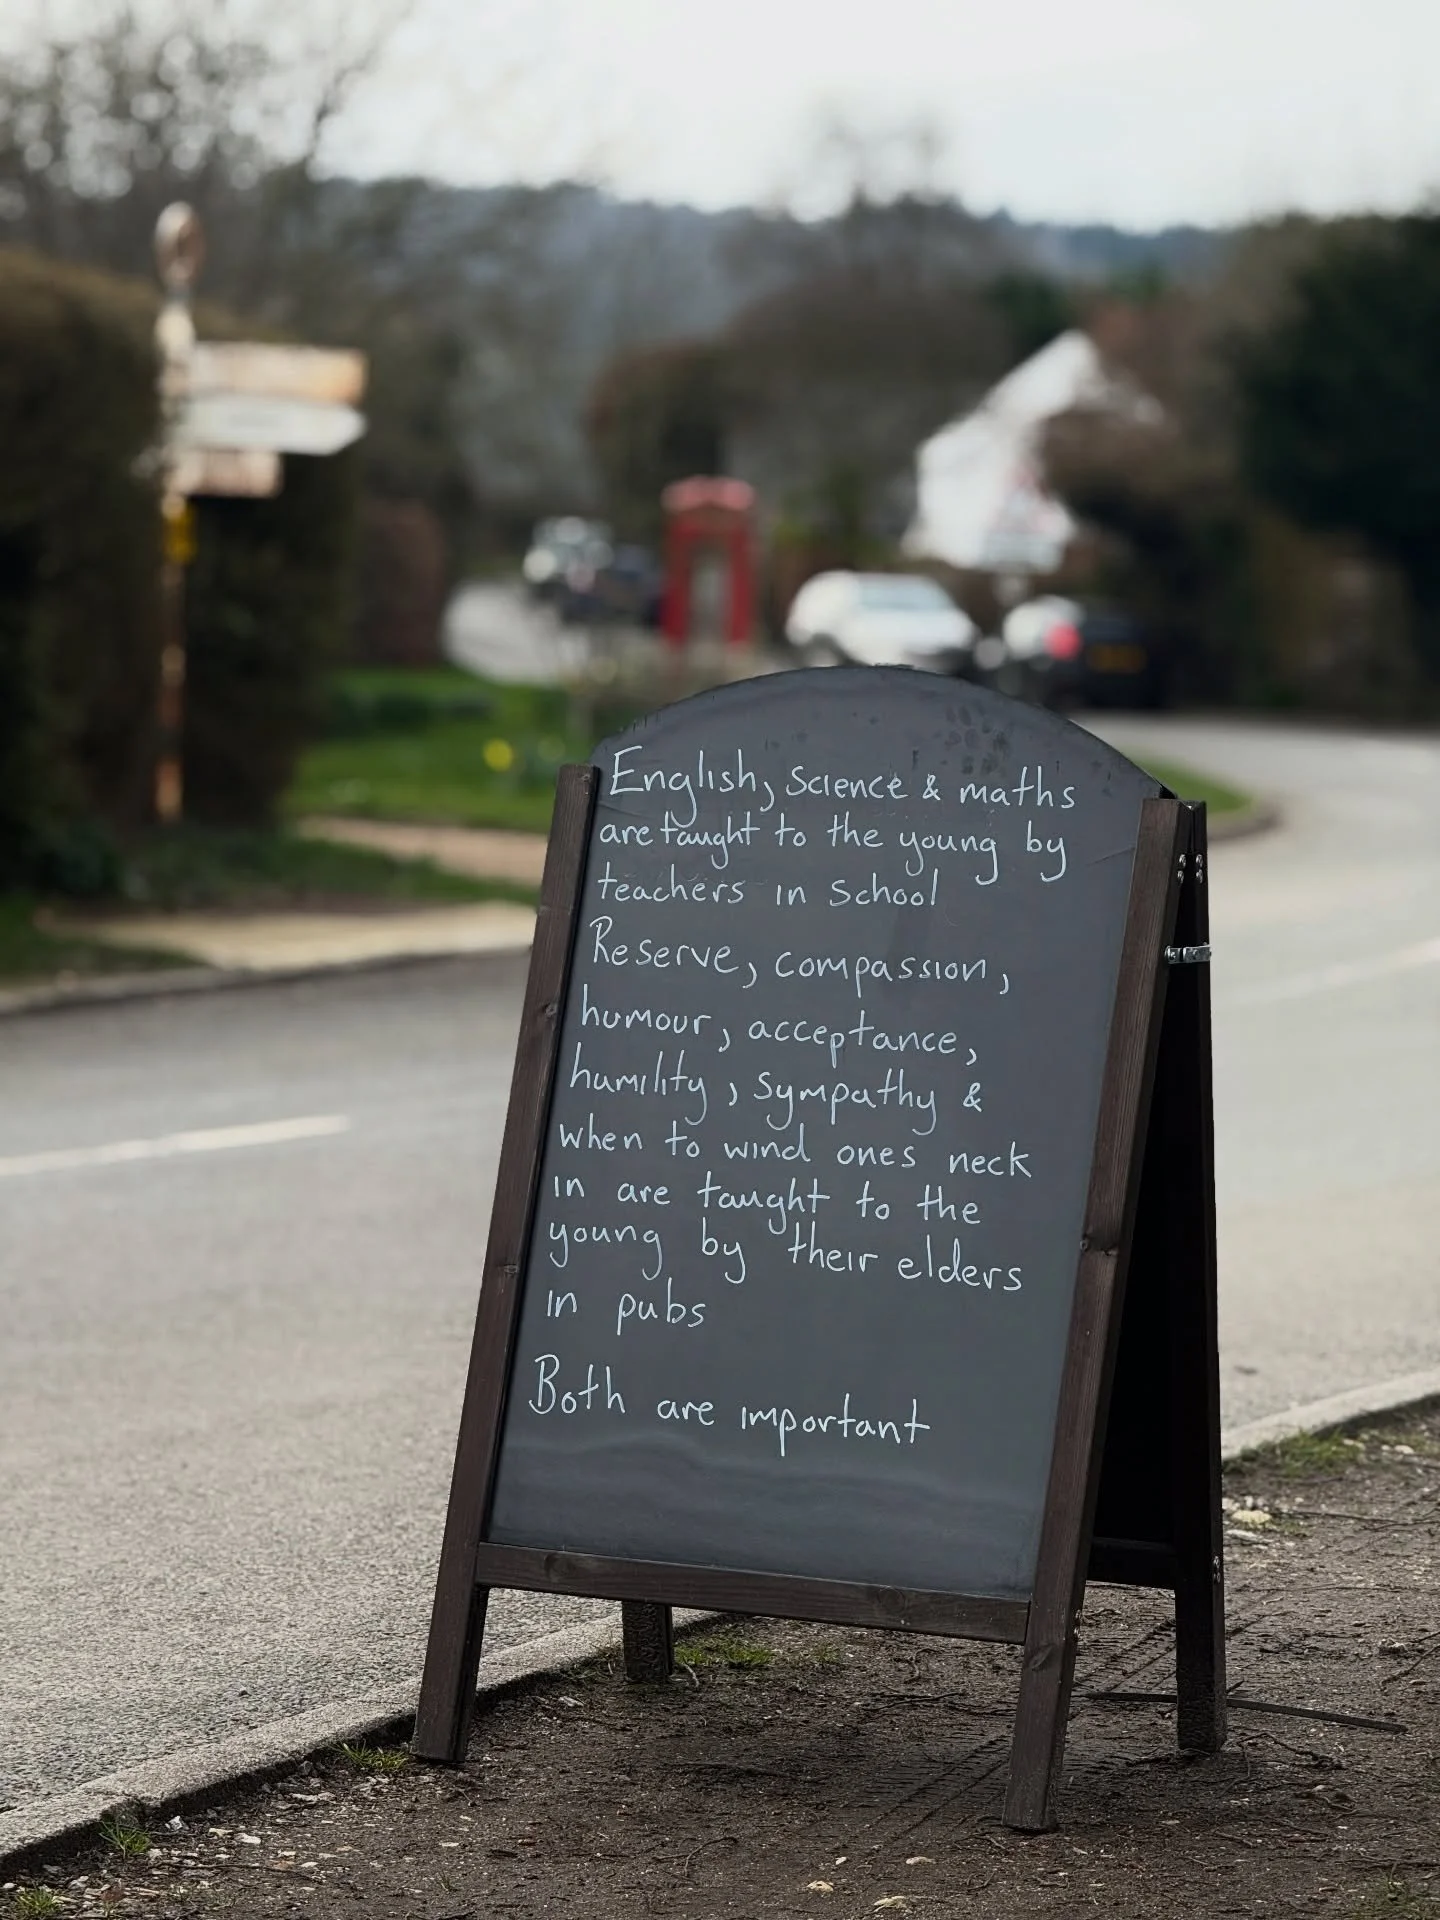 English, Science & maths
are taught to the young by
teachers in School
Reserve, compassion,
humour, acceptance,
humility, sympathy &
when to wind ones neck
in are taught to the
young by their elders
in pubs
Both are important